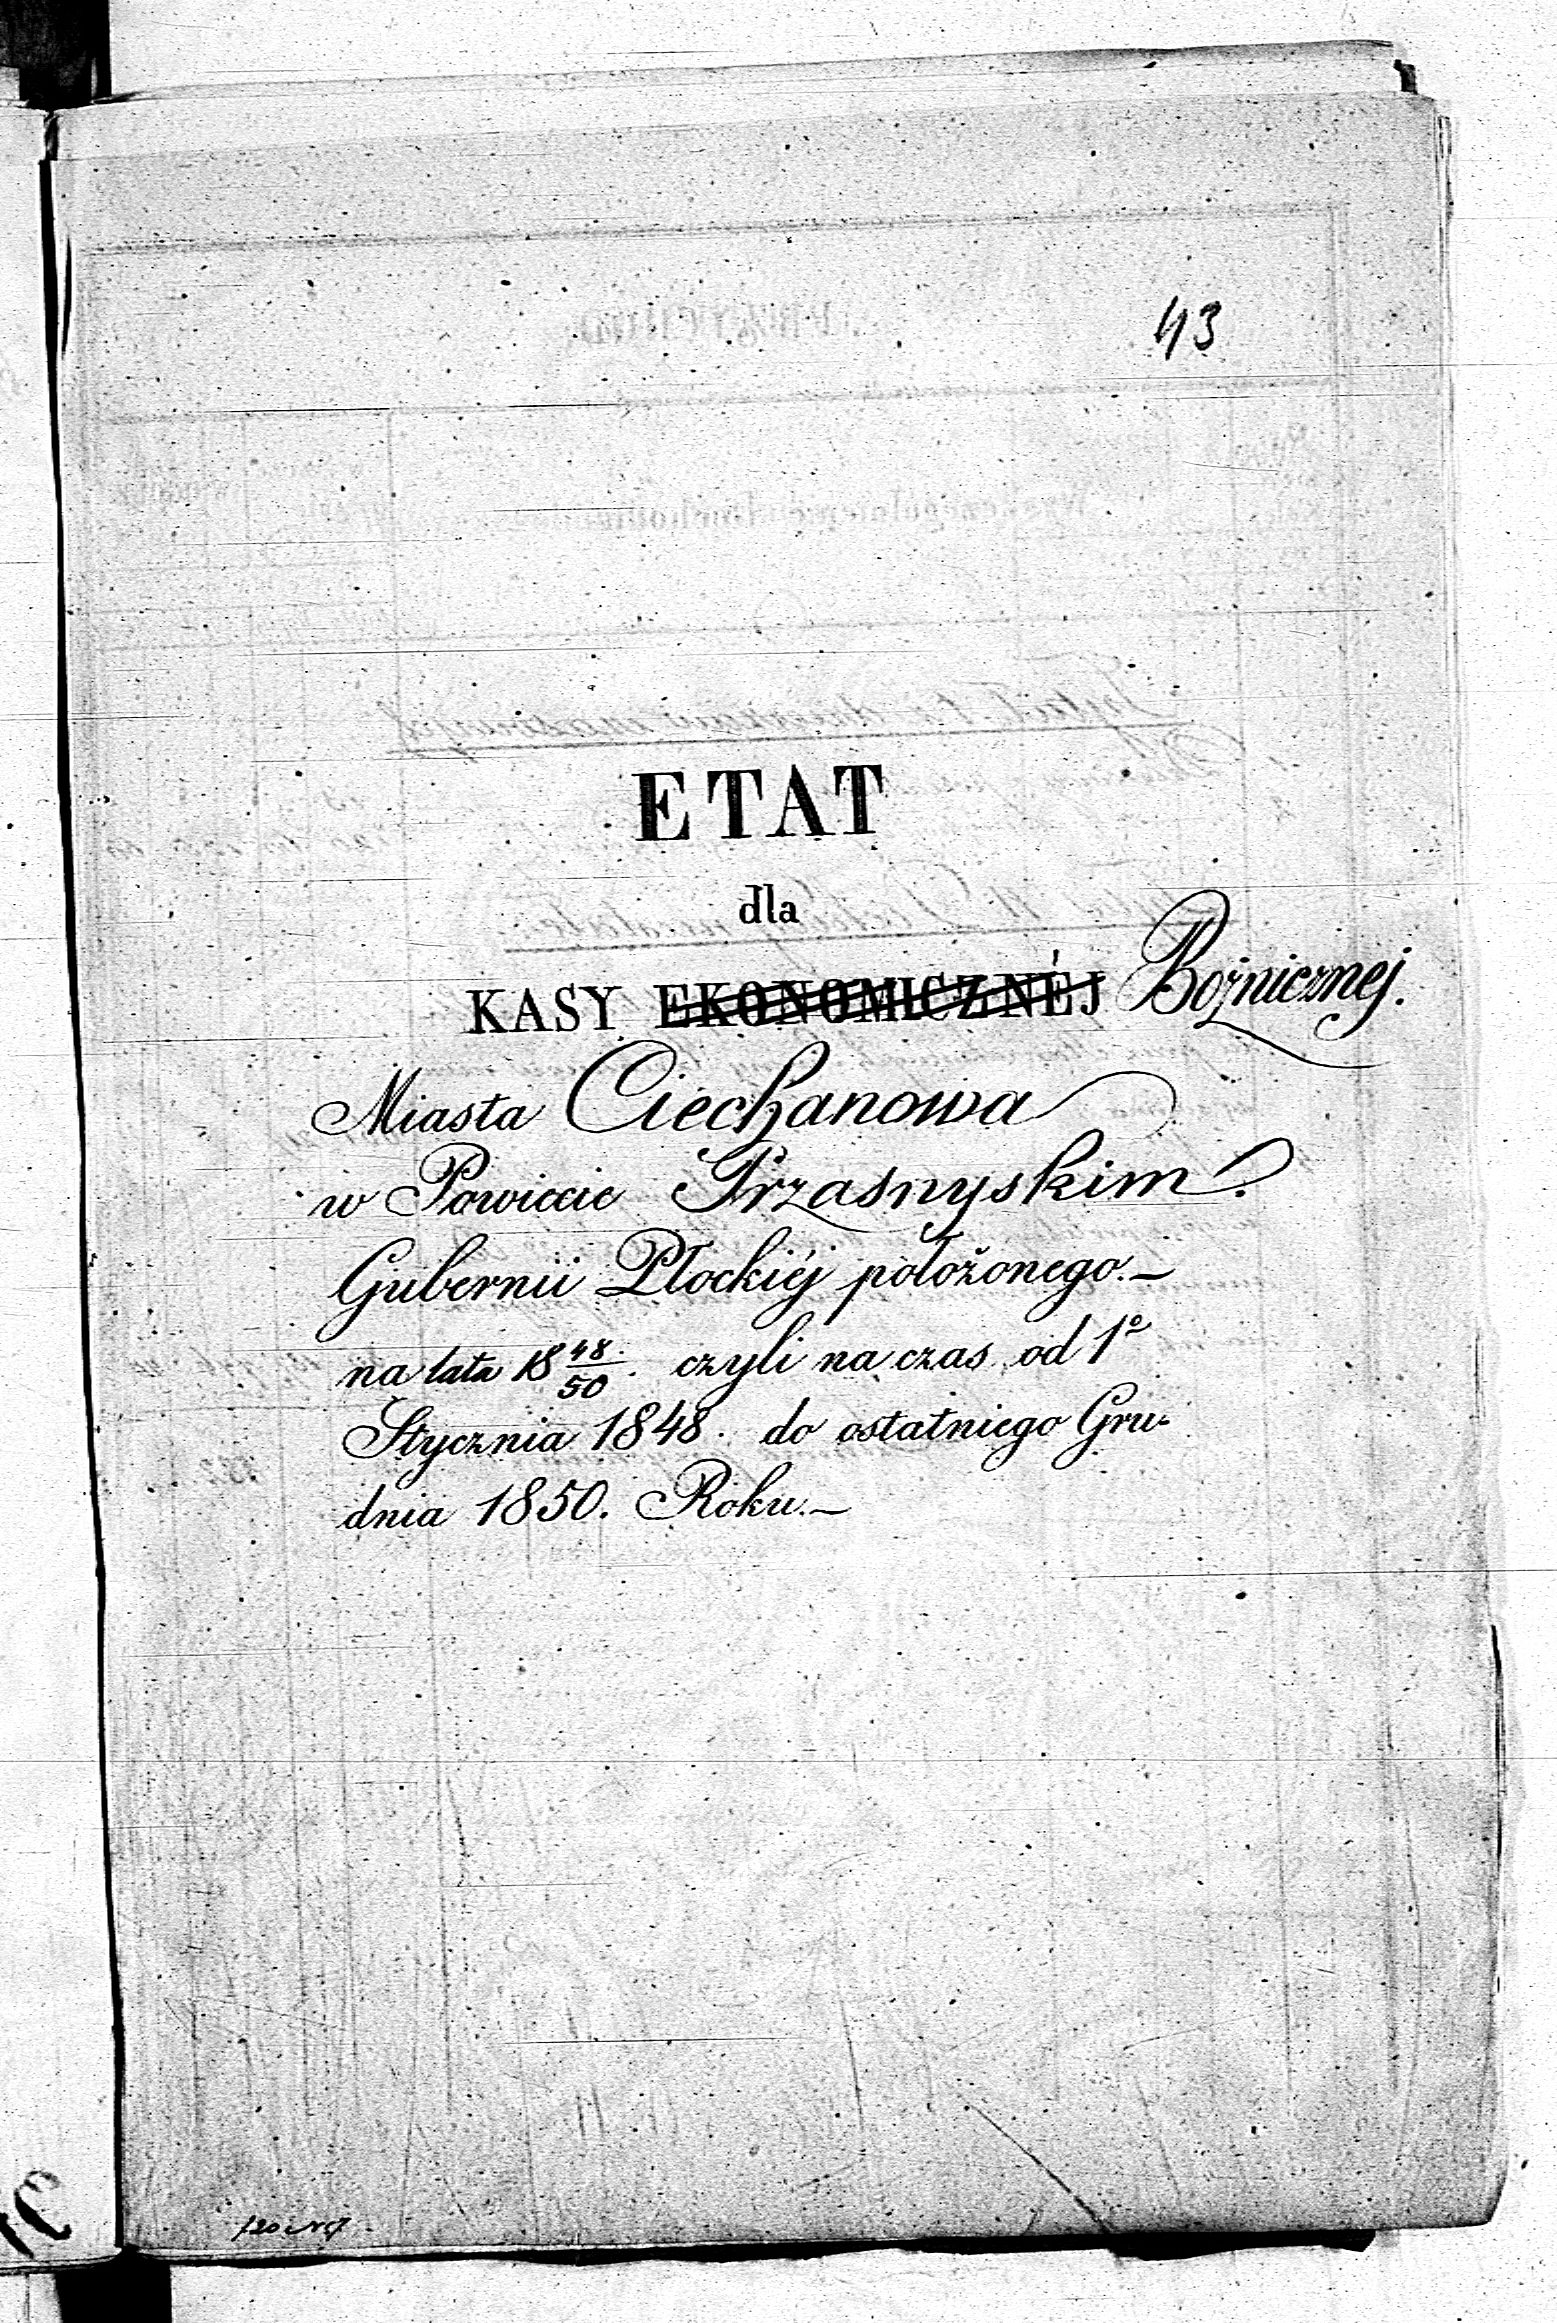 43
ETAT
dla
KASY EKONOMICZNÉJ Bóżnicznej.
Miasta Ciechanowa
w Powiecie Przasnyskim.
Gubernii Płockiéj położonego.—
na lata 18 48/50. czyli na czas od 1º
Stycznia 1848. do ostatniego Gru-
dnia 1850. Roku.—